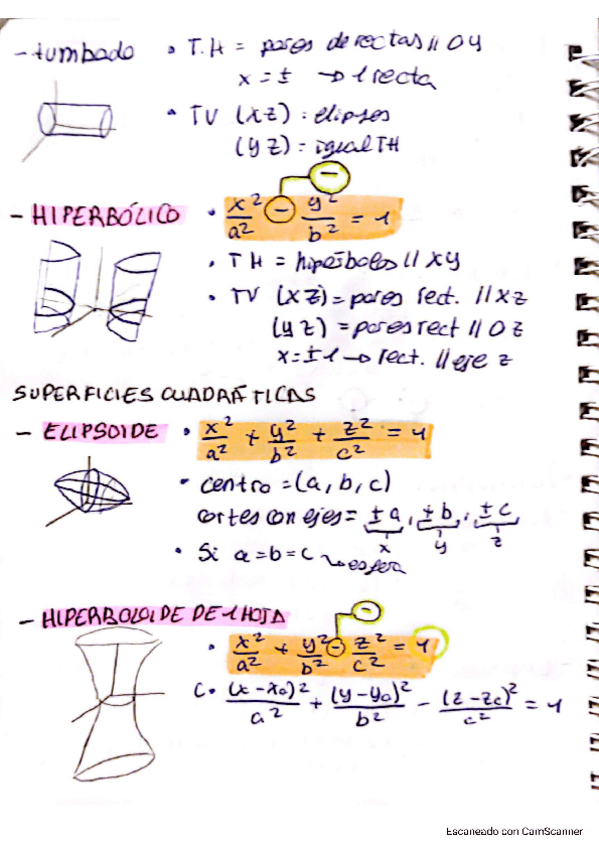 - tumbado • T.H = pares de rectas // OY
x = ± → 1 recta
• TV (XZ) : elipses
(YZ) = igual TH
- HIPERBÓLICO • x²/a² - y²/b² = 1
-
• TH = hipérbolas // XY
• TV (XZ) = pares rect. // XZ
(YZ) = pares rect // OZ
x = ±1 → rect. // eje z
SUPERFICIES CUADRÁTICAS
- ELIPSOIDE • x²/a² + y²/b² + z²/c² = 1
• centro = (a, b, c)
cortes con ejes = ±a, ±b, ±c
x y z
• Si a = b = c → esfera
- HIPERBOLOIDE DE 1 HOJA
-
• x²/a² + y²/b² - z²/c² = 1
C • (x - x₀)²/a² + (y - y₀)²/b² - (z - z₀)²/c² = 1
Escaneado con CamScanner